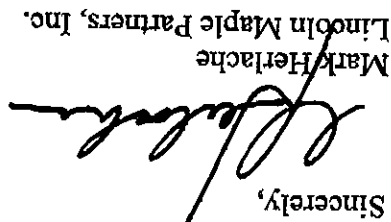 Sincerely,
Mark Herlache
Lincoln Maple Partners, Inc.